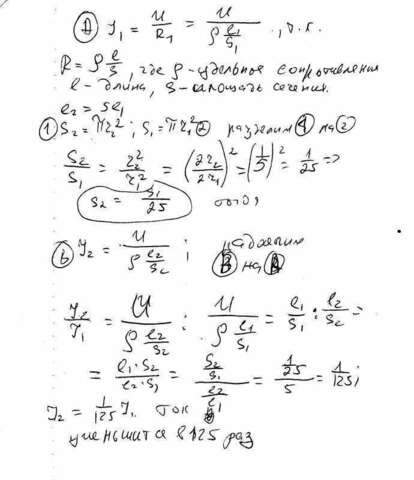 Ⓐ I₁ = U/R₁ = U/(ρ l₁/S₁), т.к.
R = ρ l/S, где ρ - удельное сопротивление
l - длина, S - площадь сечения.
l₂ = 5l₁
① S₂ = πr₂²; S₁ = πr₁² ② разделим ① на ②
S₂/S₁ = r₂²/r₁² = (2r₂/2r₁)² = (1/5)² = 1/25 =>
S₂ = S₁/25
Ⓑ I₂ = U/(ρ l₂/S₂); разделим
Ⓑ на Ⓐ
I₂/I₁ = U/(ρ l₂/S₂) : U/(ρ l₁/S₁) = l₁/S₁ : l₂/S₂ =
= (l₁·S₂)/(l₂·S₁) = (S₂/S₁)/(l₂/l₁) = (1/25)/5 = 1/125;
I₂ = 1/125 I₁ ток
уменьшится в 125 раз